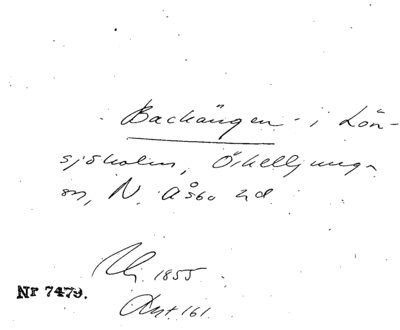 Backängen i Lön-
sjöholm, Örkelljunga
sn, N. Åsbo hd
1855
Nr 7479.
Akt 161.